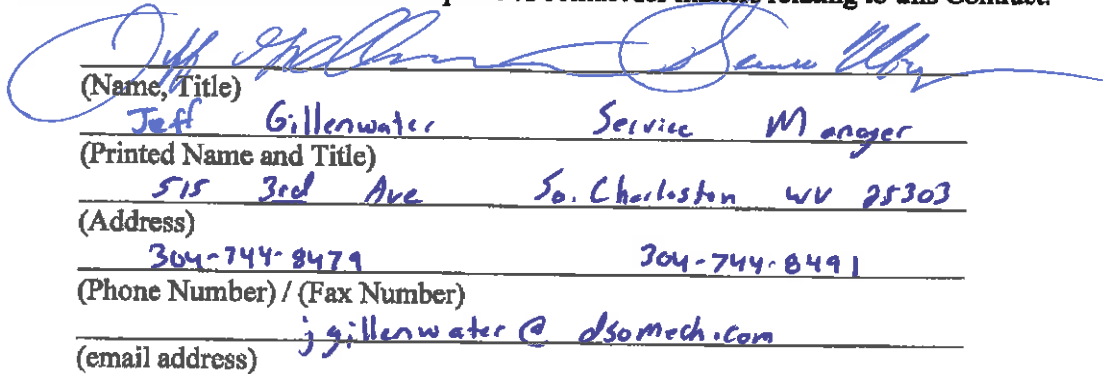 relating to this Contract.
Jeff Gillenwater Service Mngr
(Name, Title)
Jeff Gillenwater Service Manager
(Printed Name and Title)
515 3rd Ave So. Charleston WV 25303
(Address)
304-744-8479 304-744-8491
(Phone Number) / (Fax Number)
jgillenwater@dsomech.com
(email address)